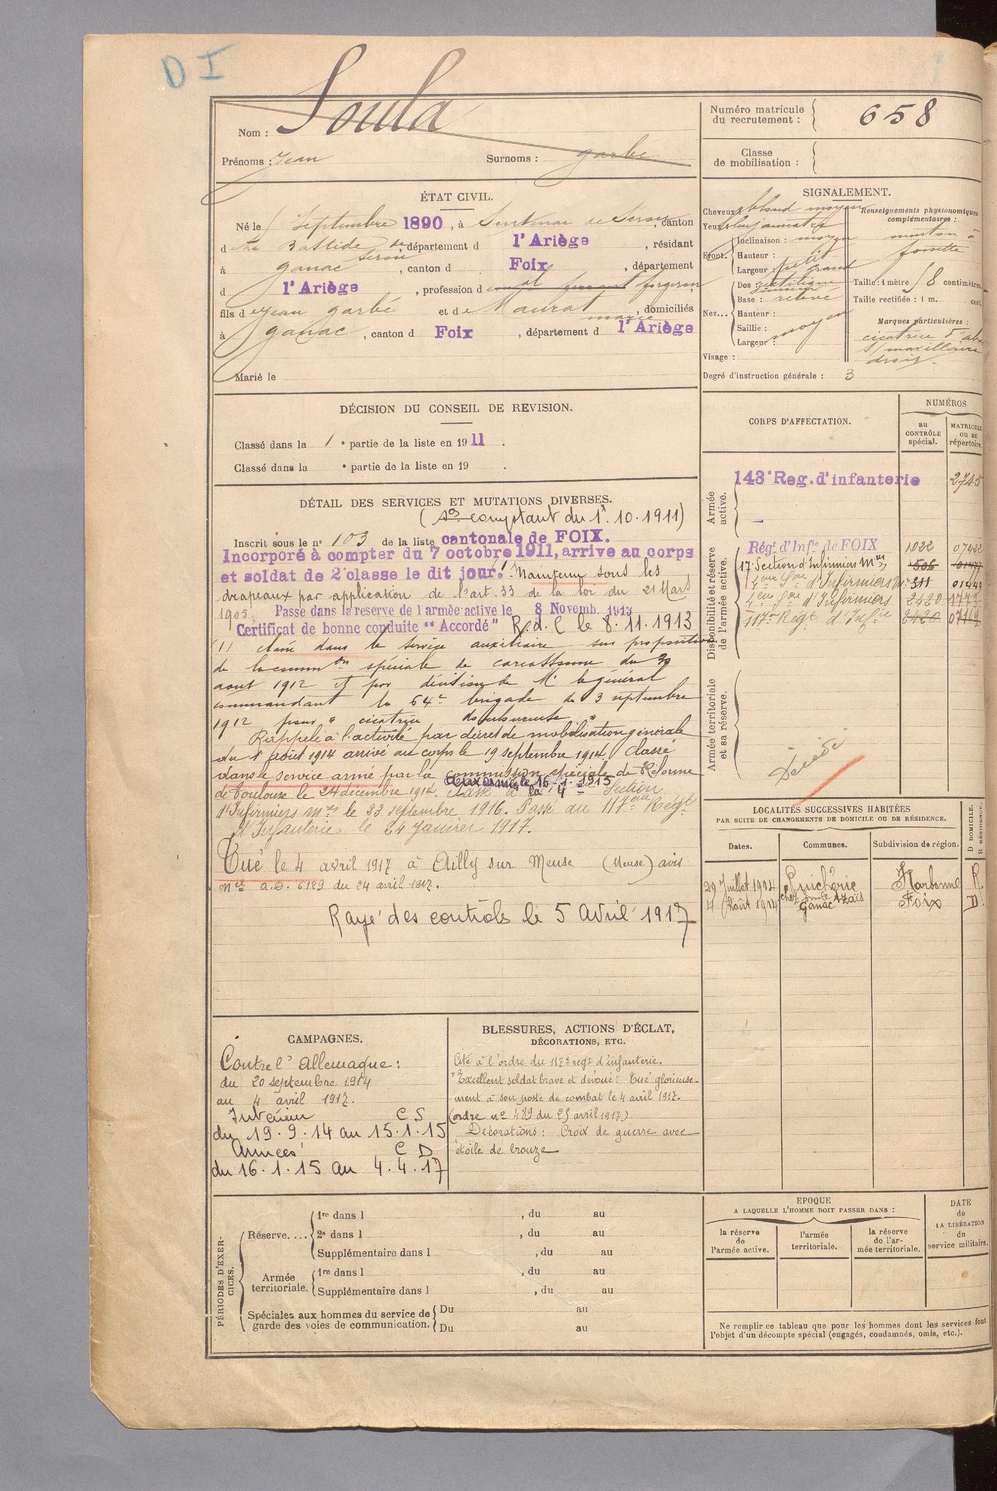 D I
Nom : Soula
Prénoms : Jean Surnoms : garbé
Numéro matricule du recrutement : 658
Classe de mobilisation :
ÉTAT CIVIL.
Né le septembre 1890, à Sentenac de Serou, canton
d La Bastide de Serou, département d l'Ariège, résidant
à ganac, canton d Foix, département
d l'Ariège, profession d forgeron
fils d Jean garbé et d Maurat marie, domiciliés
à ganac, canton d Foix, département d l'Ariège
Marié le
SIGNALEMENT.
Cheveux blond moyen
Yeux
Renseignements physionomiques complémentaires :
menton à fossette
Front. Inclinaison : moyen
Hauteur : petit
Largeur : grand
Nez... Dos : rectiligne
Base : relevé
Hauteur :
Saillie : moyen
Largeur :
Visage :
Taille : 1 mètre 58 centimètres
Taille rectifiée : 1 m. cent.
Marques particulières :
cicatrice
maxillaire
droit
Degré d'instruction générale : 3
DÉCISION DU CONSEIL DE REVISION.
Classé dans la 1e partie de la liste en 1911.
Classé dans la e partie de la liste en 19 .
DÉTAIL DES SERVICES ET MUTATIONS DIVERSES.
(So comptant du 1r. 10. 1911)
Inscrit sous le no 103 de la liste cantonale de FOIX.
Incorporé à compter du 7 octobre 1911, arrive au corps
et soldat de 2e classe le dit jour. Maintenu sous les
drapeaux par application de l'art. 33 de la loi du 21 Mars
1905. Passé dans la réserve de l'armée active le 8 Novemb. 1913
Certificat de bonne conduite "Accordé" R.d.C le 8.11.1913
(1) Classé dans le service auxiliaire sur proposition
de la comm on spéciale de carcassonne du 29
aout 1912 et par décision de Mr le général
commandant la 64e brigade du 3 septembre
1912 pour " cicatrice
Rappelé à l'activité par décret de mobilisation générale
du 1r Août 1914 arrivé au corps le 19 septembre 1914. Classé
dans le service armé par la Commission spéciale de Réforme
de Toulouse le 24 décembre 1914. Aux armées le 16-1-1915 Passé à la 4e Section
d'Infirmiers Mres le 23 septembre 1916. Passé au 117ème Régt
d'Infanterie le 24 janvier 1917.
Tué le 4 avril 1917 à Ailly sur Meuse (Meuse) avis
Mel A.D. 6189 du 24 avril 1917.
Rayé des contrôles le 5 Avril 1917
CORPS D'AFFECTATION.
NUMÉROS
au contrôle spécial.
matricule ou au répertoire.
Armée active.
143e Reg. d'infanterie 2745
Disponibilité et réserve de l'armée active.
Régt d'Infie de FOIX 1022
17e Section d'Infirmiers Mres 506
d'Infirmiers Mres 311
4ème Son d'Infirmiers 2420
117e Régt d'Infie
Armée territoriale et sa réserve.
Décédé
LOCALITÉS SUCCESSIVES HABITÉES
PAR SUITE DE CHANGEMENTS DE DOMICILE OU DE RÉSIDENCE.
Dates. Communes. Subdivision de région. D. DOMICILE. R. RÉSIDENCE.
29 Juillet 1914 Narbonne R.
4 Août 1914 Ganac Foix D.
CAMPAGNES.
Contre l'Allemagne :
du 20 septembre 1914
au 4 avril 1917.
Intérieur C S
du 19.9.14 au 15.1.15
Armées C D
du 16.1.15 au 4.4.17
BLESSURES, ACTIONS D'ÉCLAT,
DÉCORATIONS, ETC.
Cité à l'ordre du 117e régt d'infanterie.
"Excellent soldat brave et dévoué. Tué glorieuse-
ment à son poste de combat le 4 avril 1917.
(ordre no 489 du 25 avril 1917)
Décorations : Croix de guerre avec
étoile de bronze
PÉRIODES D'EXERCICES.
Réserve.... 1re dans l , du au
2e dans l , du au
Supplémentaire dans l , du au
Armée territoriale. 1re dans l , du au
Supplémentaire dans l , du au
Spéciales aux hommes du service de garde des voies de communication. Du au
Du au
EPOQUE
A LAQUELLE L'HOMME DOIT PASSER DANS :
la réserve de l'armée active.
l'armée territoriale.
la réserve de l'armée territoriale.
DATE de LA LIBÉRATION du service militaire.
Ne remplir ce tableau que pour les hommes dont les services font
l'objet d'un décompte spécial (engagés, condamnés, omis, etc.).